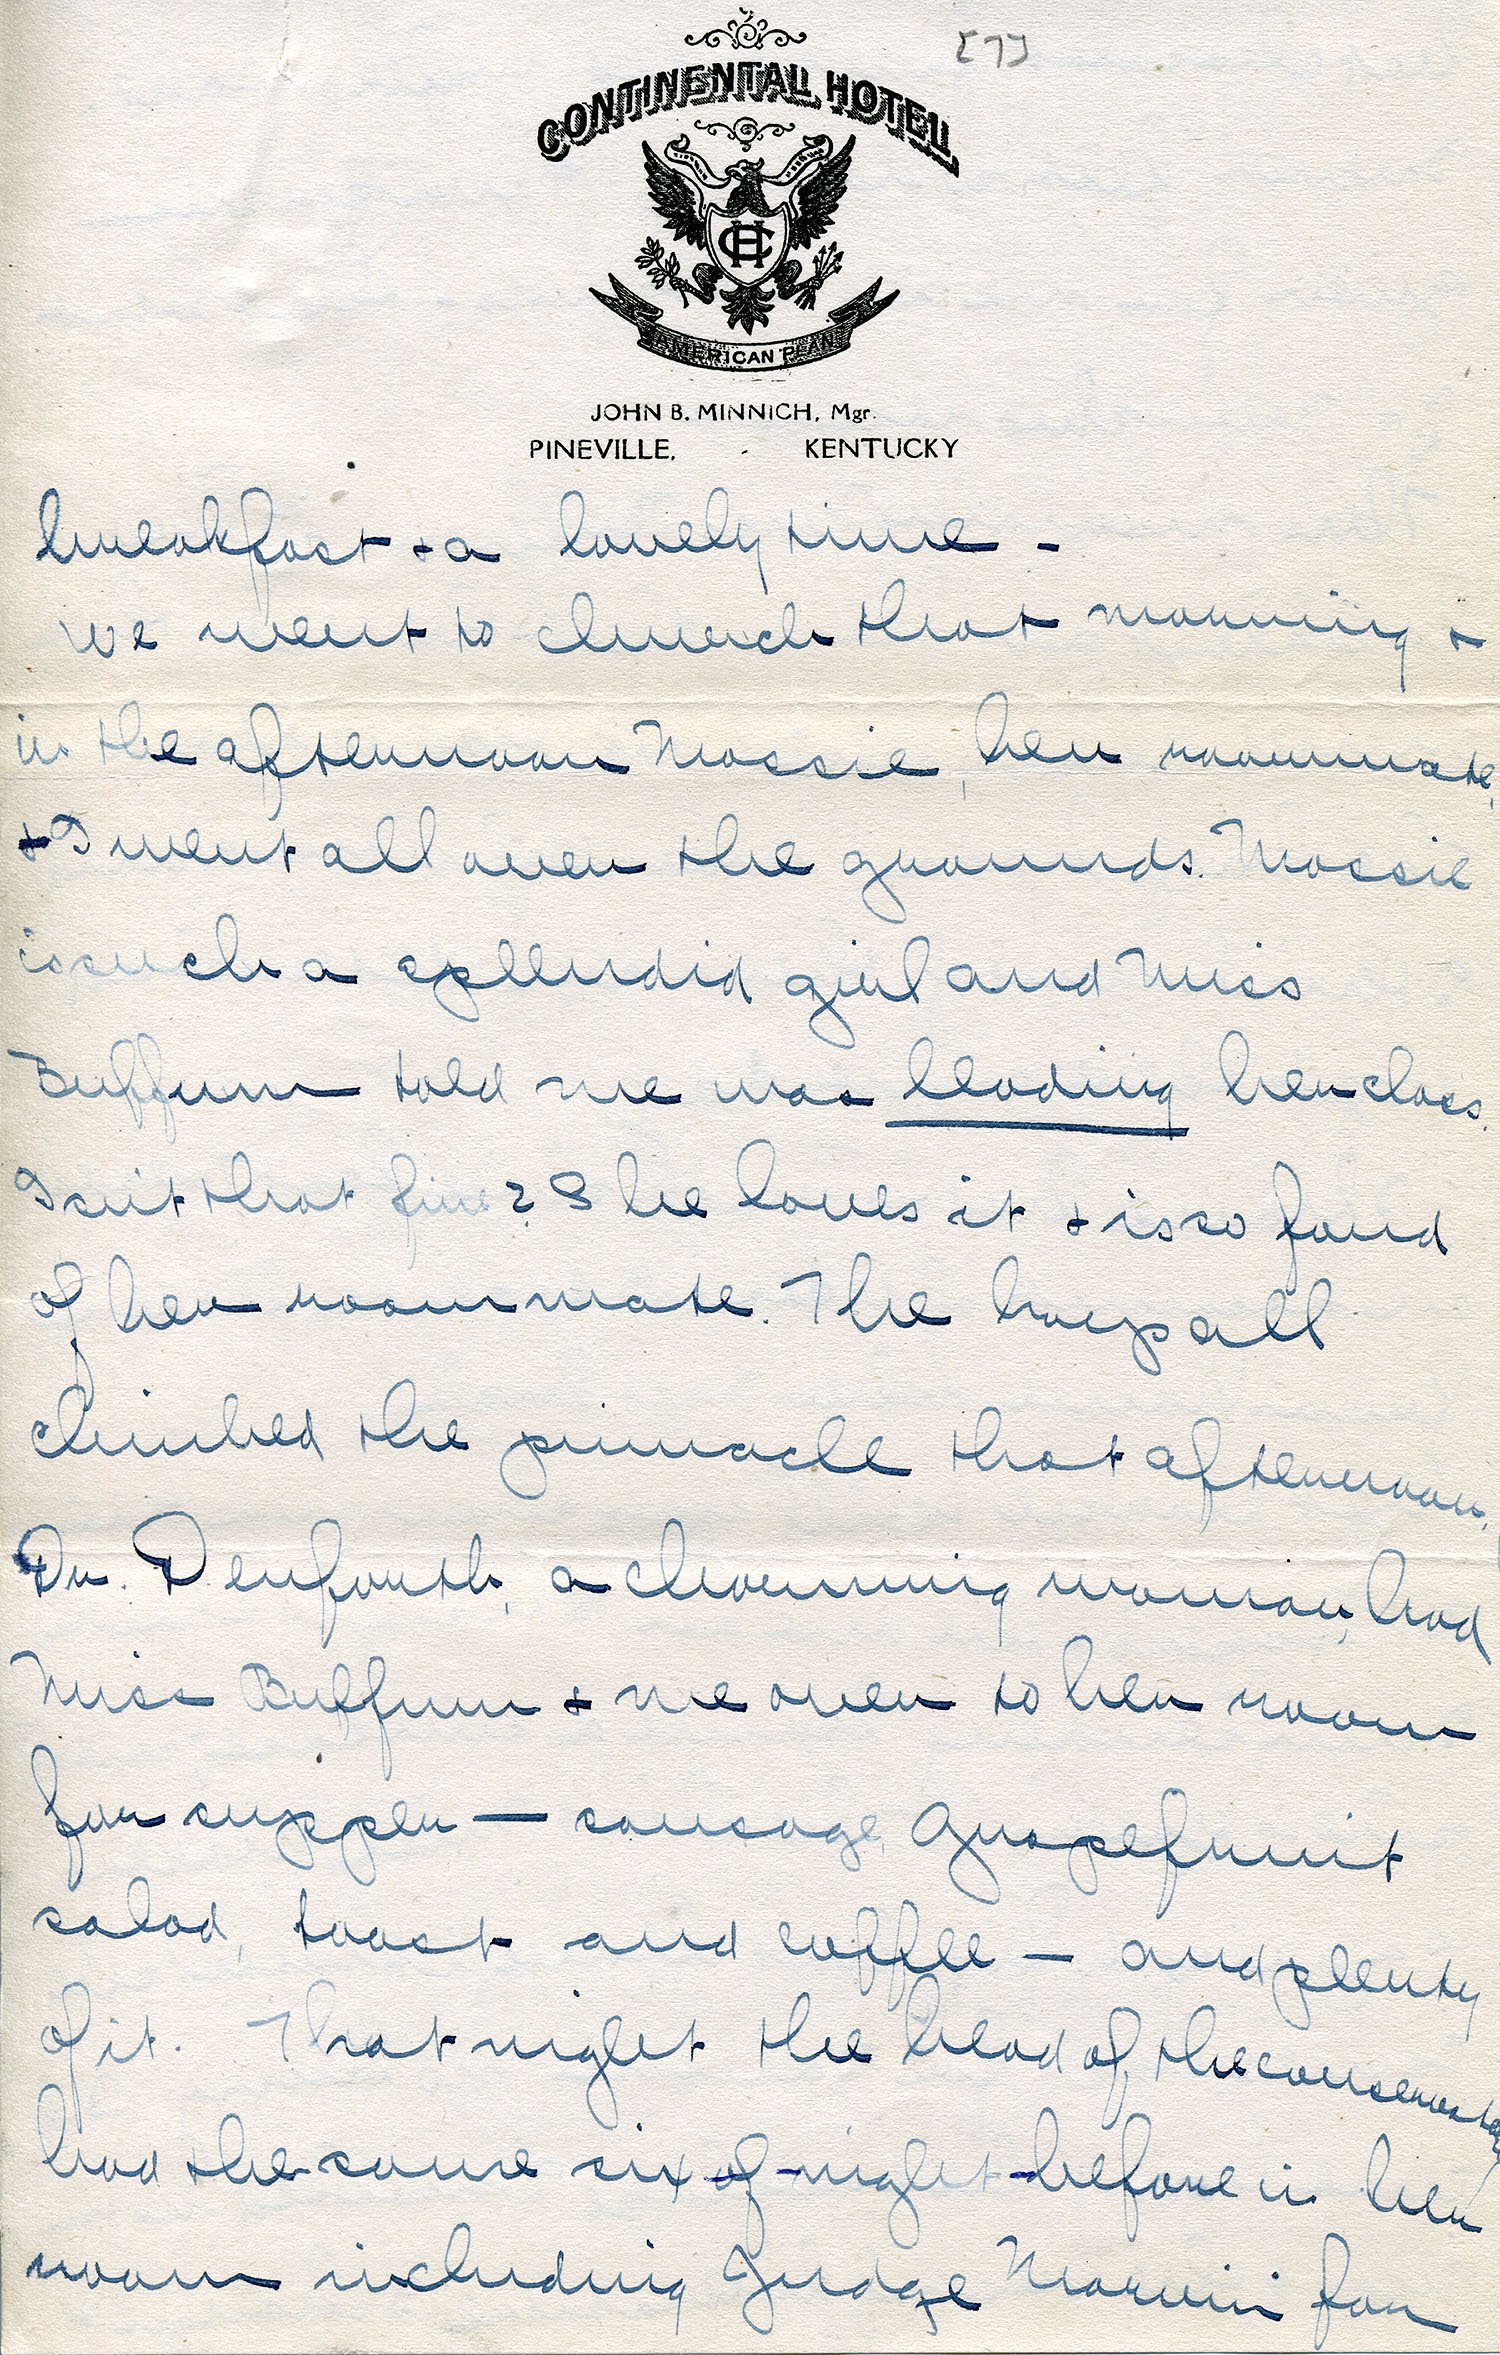 [7]
CONTINENTAL HOTEL
CH
AMERICAN PLAN
JOHN B. MINNICH, Mgr.
PINEVILLE, - KENTUCKY
breakfast + a lovely time -
We went to church that morning +
in the afternoon Mossie, her roommate,
+ I went all over the grounds. Mossie
is such a splendid girl and Miss
Buffum told me was leading her class.
Isn't that fine? She loves it + is so fond
of her roommate. The boys all
climbed the pinnacle that afternoon.
Dr. Denforth, a charming woman, had
Miss Buffum + me over to her room
for supper — sausage, grapefruit
salad, toast and coffee — and plenty
of it. That night the head of the conservatory
had the same six-of-night-before in her
room including Judge Marvin for